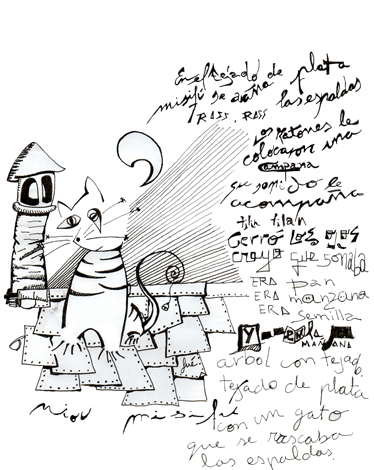 En el tejado de plata
misifú se araña las espaldas
RASS, RASS
los ratones le
colocaron una
campana
su sonido le
acompaña
tilin tilan
Cerró los ojos
creyó que soñaba
ERA pan
ERA manzana
ERA semilla
Y en la
MAÑANA
arbol con tejado,
tejado de plata
con un gato
que se rascaba
las espaldas.
miou misifú